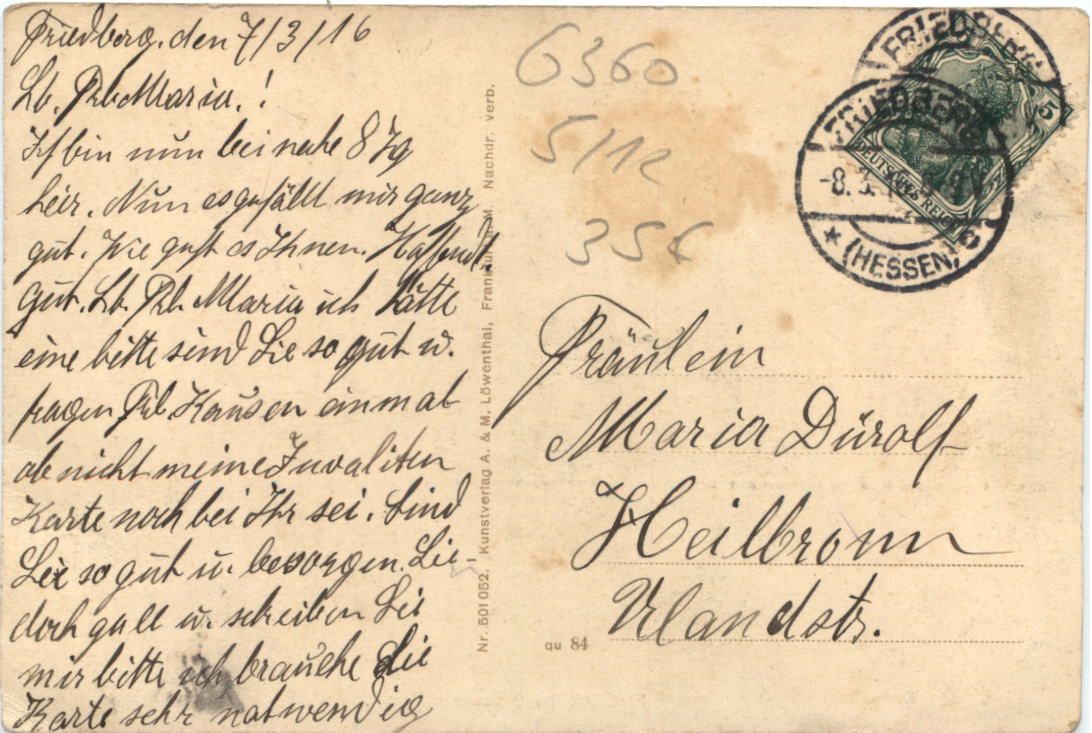 Friedberg. den 7/3/16
Lb. Frl. Maria.!
Ich bin nun bei nahe 8 Tg
heir. Nun es gefällt mir ganz
gut. Wie geht es Ihnen. Hoffentl.
gut. Lb. Frl. Maria ich hätte
eine bitte sind Sie so gut u.
fragen Frl. Hausen einmal
ob nicht meine Invaliten
Karte noch bei Ihr sei. Sind
Sie so gut u. besorgen Sie
doch u. schreiben Sie
mir bitte ich brauche die
Karte sehr notwendig
Nr. 501 052. Kunstverlag A. & M. Löwenthal, Frankfurt a. M. Nachdr. verb.
6360
5/12
356
FRIEDBERG
FRIEDBERG
-8. 3.
* (HESSEN)
DEUTSCHES REICH
5
Fräulein
Maria Dürolf
Heilbronn
Ulandstr.
qu 84